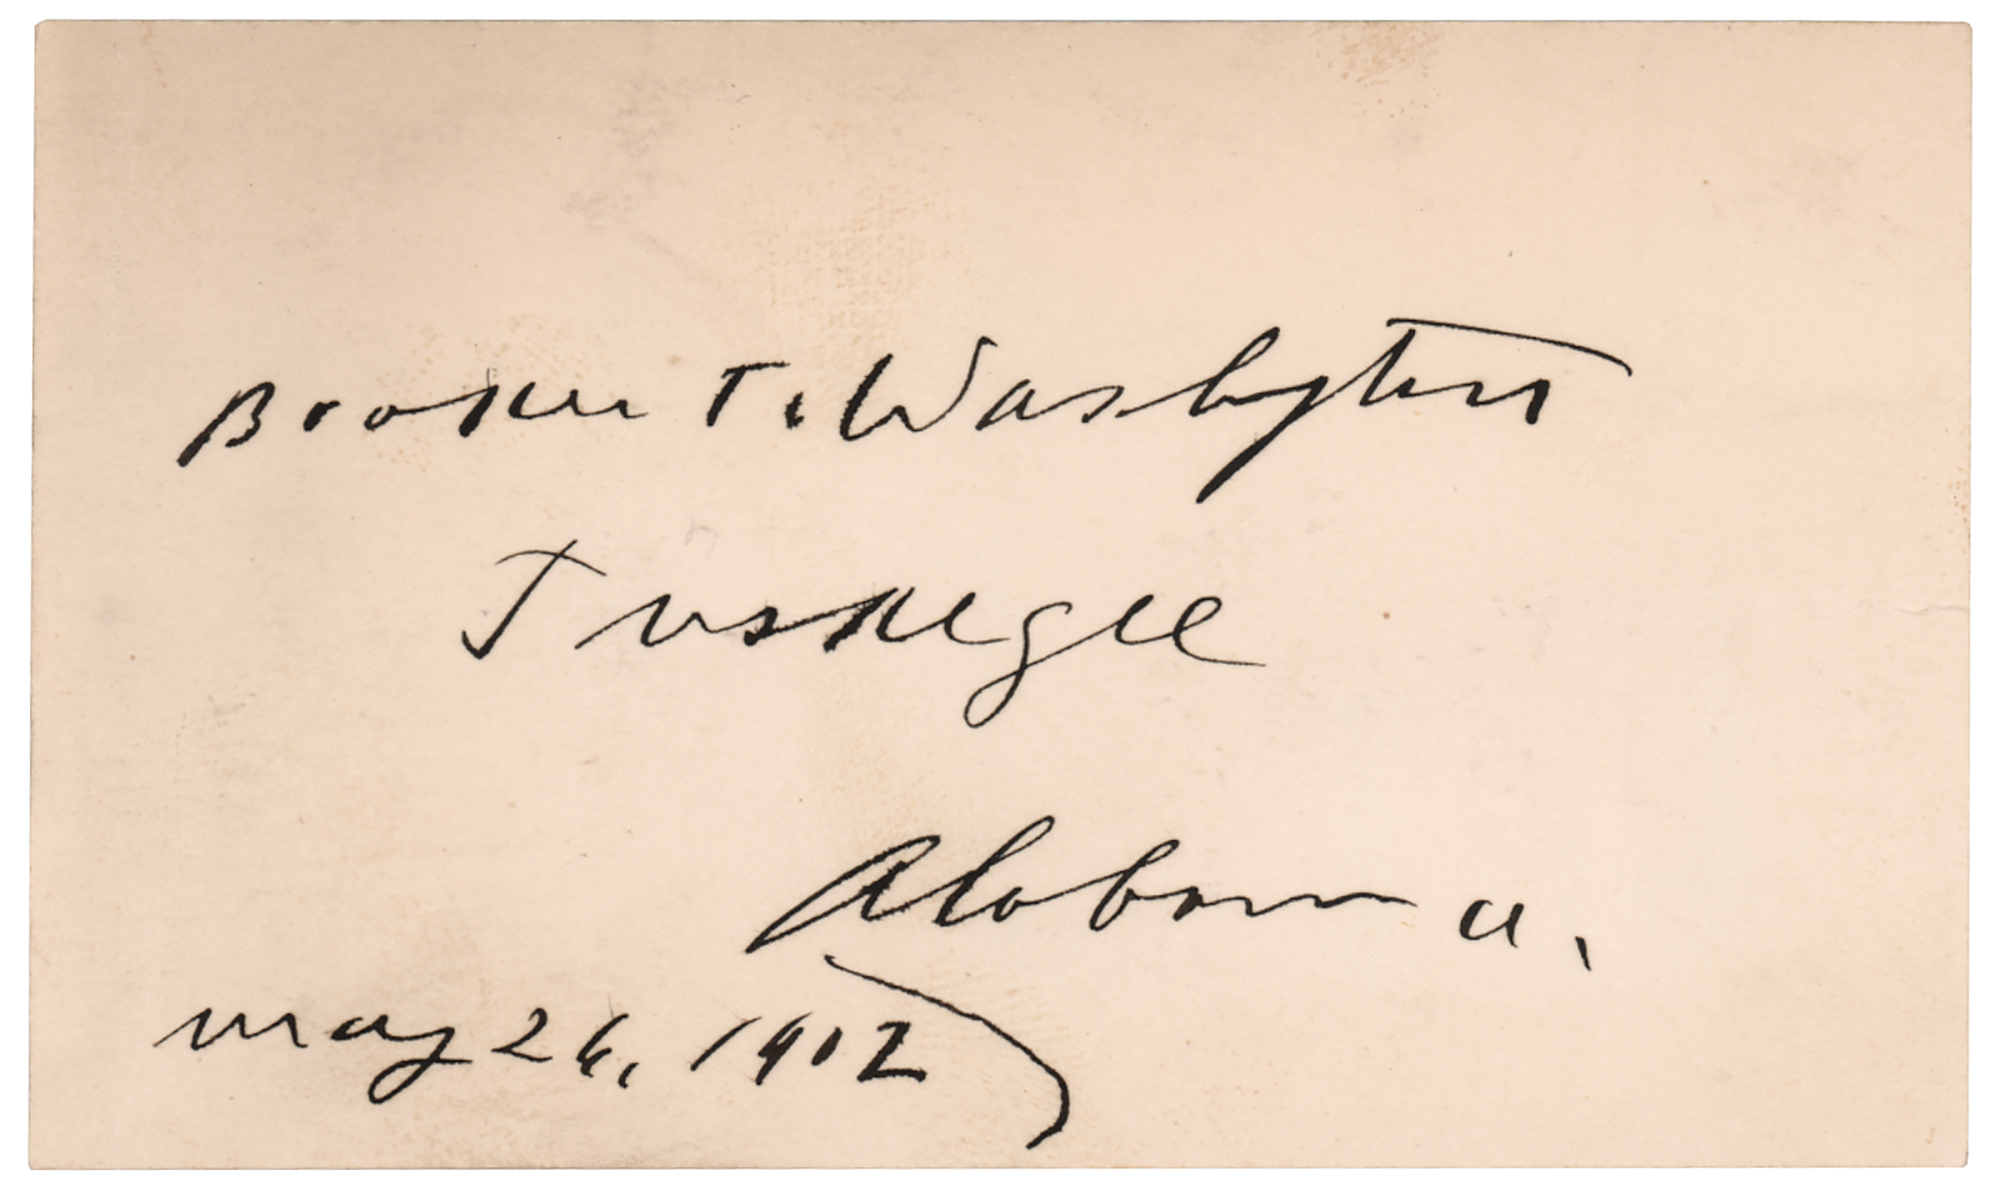 Booker T. Washington
Tuskegee
Alabama.
May 26, 1902